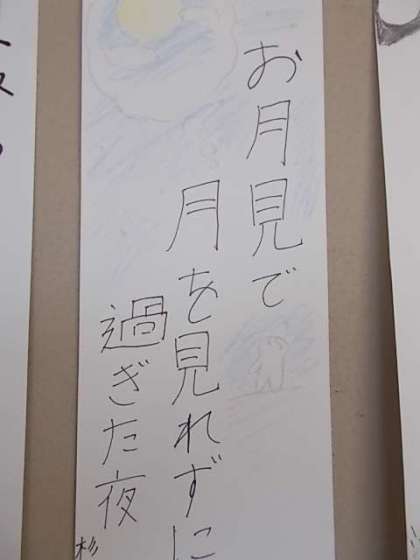 お月見で
月を見れずに
過ぎた夜
杉